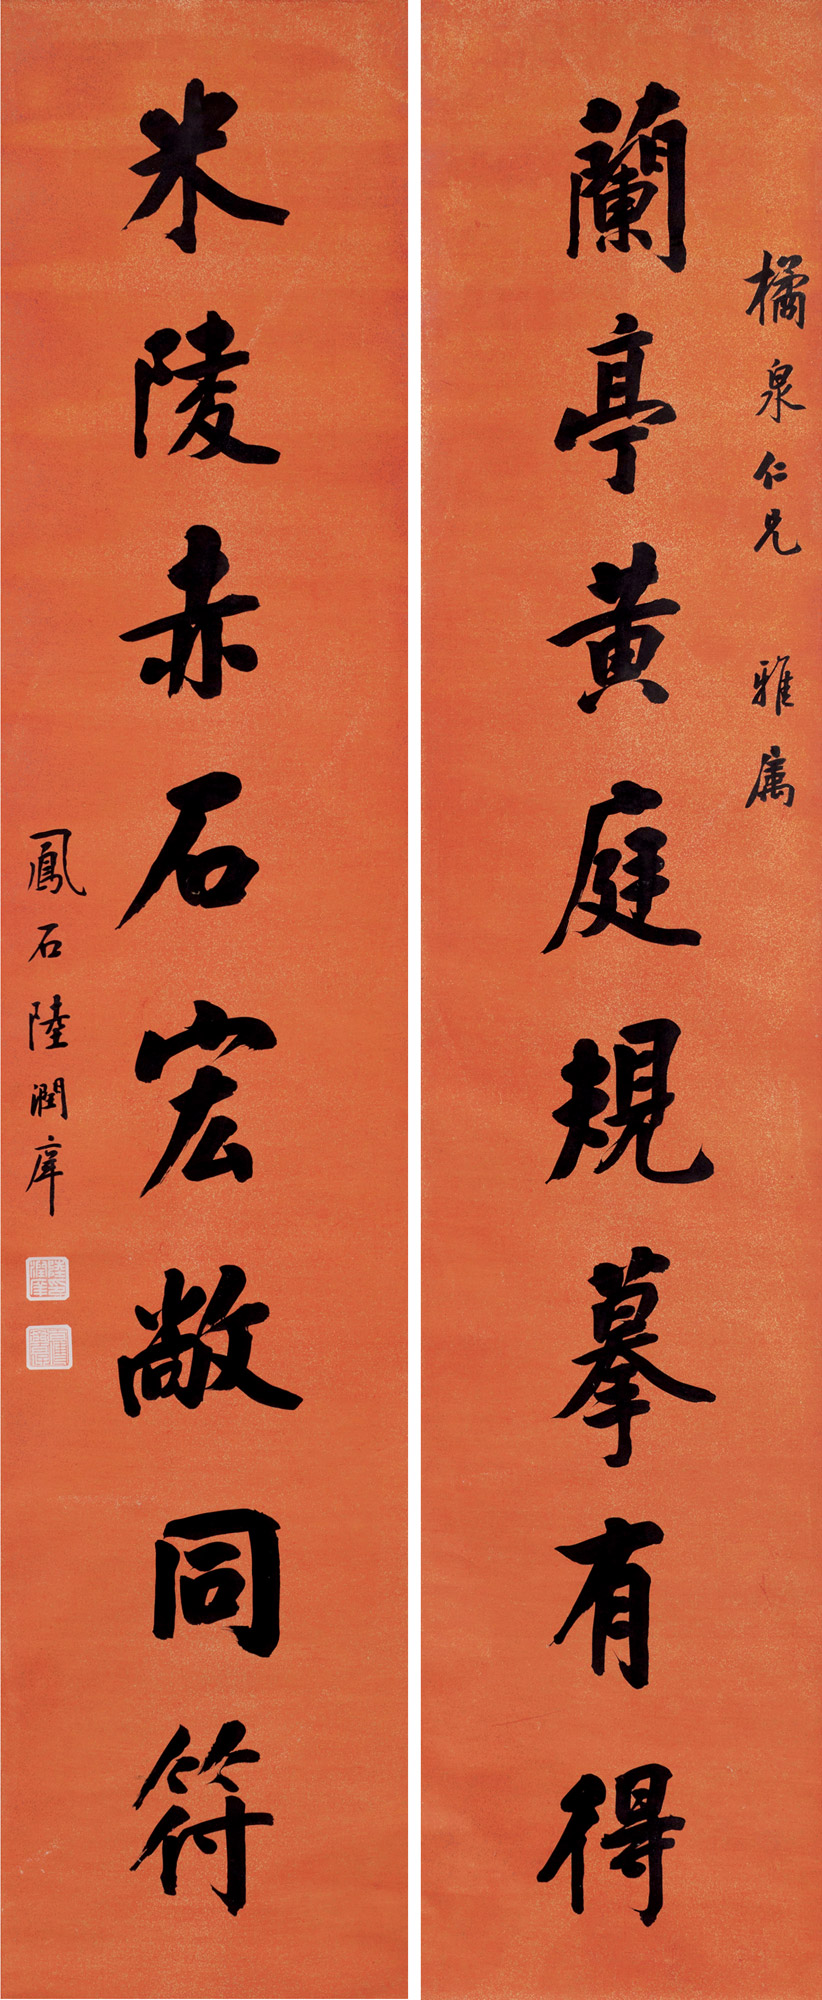 橘泉仁兄 雅屬
蘭亭黃庭規摹有得
米陵赤石宏敞同符
鳳石陸潤庠